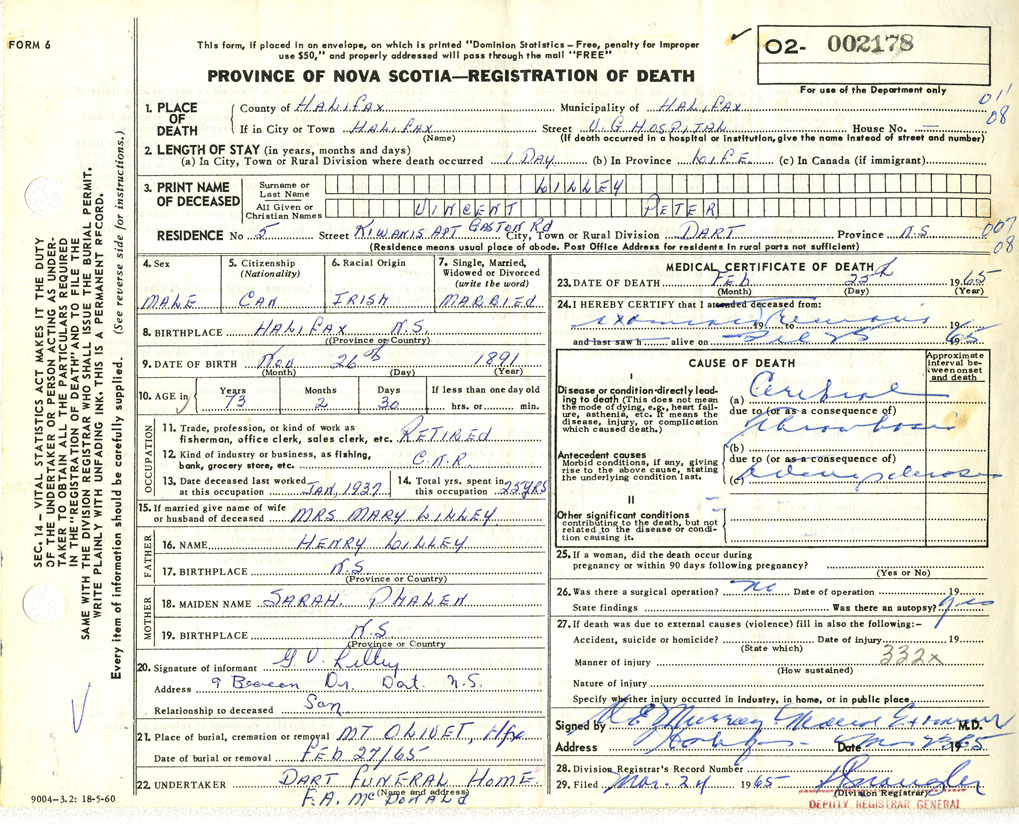 FORM 6
This form, if placed in an envelope, on which is printed "Dominion Statistics – Free, penalty for improper
use $50," and properly addressed will pass through the mail "FREE"
PROVINCE OF NOVA SCOTIA—REGISTRATION OF DEATH
02- 002178
For use of the Department only
SEC. 14 – VITAL STATISTICS ACT MAKES IT THE DUTY
OF THE UNDERTAKER OR PERSON ACTING AS UNDER-
TAKER TO OBTAIN ALL THE PARTICULARS REQUIRED
IN THE "REGISTRATION OF DEATH" AND TO FILE THE
SAME WITH THE DIVISION REGISTRAR WHO SHALL ISSUE THE BURIAL PERMIT.
WRITE PLAINLY WITH UNFADING INK. THIS IS A PERMANENT RECORD.
Every item of information should be carefully supplied. (See reverse side for instructions.)
1. PLACE OF DEATH
County of HALIFAX Municipality of HALIFAX 011
08
If in City or Town HALIFAX Street V. G HOSPITAL House No. —
(Name) (If death occurred in a hospital or institution, give the name instead of street and number)
2. LENGTH OF STAY (in years, months and days)
(a) In City, Town or Rural Division where death occurred 1 DAY (b) In Province LIFE (c) In Canada (if immigrant)
3. PRINT NAME OF DECEASED
Surname or Last Name LILLEY
All Given or Christian Names VINCENT PETER
RESIDENCE No 5 Street KIWANIS APT GASTON Rd City, Town or Rural Division DART Province N.S 007
08
(Residence means usual place of abode. Post Office Address for residents in rural parts not sufficient)
4. Sex
MALE
5. Citizenship (Nationality)
CAN
6. Racial Origin
IRISH
7. Single, Married, Widowed or Divorced (write the word)
MARRIED
8. BIRTHPLACE HALIFAX N.S.
(Province or Country)
9. DATE OF BIRTH Nov 26th 1891
(Month) (Day) (Year)
10. AGE in
Years Months Days If less than one day old
73 2 30 hrs. or min.
OCCUPATION
11. Trade, profession, or kind of work as
fisherman, office clerk, sales clerk, etc. RETIRED
12. Kind of industry or business, as fishing,
bank, grocery store, etc. C.N.R.
13. Date deceased last worked
at this occupation JAN 1937
14. Total yrs. spent in
this occupation 25 YRS
15. If married give name of wife
or husband of deceased MRS MARY LILLEY
FATHER
16. NAME HENRY LILLEY
17. BIRTHPLACE N.S.
(Province or Country)
MOTHER
18. MAIDEN NAME SARAH. PHALEN
19. BIRTHPLACE N.S.
(Province or Country)
20. Signature of informant G V. Lilley
Address 9 Beacon Dr. Dart. N.S.
Relationship to deceased Son
21. Place of burial, cremation or removal MT OLIVET, Hfx
Date of burial or removal FEB 27/65
22. UNDERTAKER DART FUNERAL HOME
(Name and address)
F.A. McDONALD
9004-3.2: 18-5-60
MEDICAL CERTIFICATE OF DEATH
23. DATE OF DEATH Feb 25th 1965
(Month) (Day) (Year)
24. I HEREBY CERTIFY that I attended deceased from:
examined 19 to remains 19
and last saw h alive on Feb 25 1965
CAUSE OF DEATH
Approximate interval between onset and death
I
Disease or condition directly lead-
ing to death (This does not mean
the mode of dying, e.g., heart fail-
ure, asthenia, etc. It means the
disease, injury, or complication
which caused death.)
(a) Cerebral
due to (or as a consequence of)
thrombosis
Antecedent causes
Morbid conditions, if any, giving
rise to the above cause, stating
the underlying condition last.
(b)
due to (or as a consequence of)
(c)
II
Other significant conditions
contributing to the death, but not
related to the disease or condi-
tion causing it.
25. If a woman, did the death occur during
pregnancy or within 90 days following pregnancy?
(Yes or No)
26. Was there a surgical operation? no Date of operation 19
State findings Was there an autopsy? yes
27. If death was due to external causes (violence) fill in also the following:–
Accident, suicide or homicide? Date of injury 19
(State which)
332x
Manner of injury
(How sustained)
Nature of injury
Specify whether injury occurred in industry, in home, or in public place
Signed by Murray M.D.
Address Date 1965
28. Division Registrar's Record Number
29. Filed Mar. 24 1965
(Division Registrar)
DEPUTY REGISTRAR GENERAL